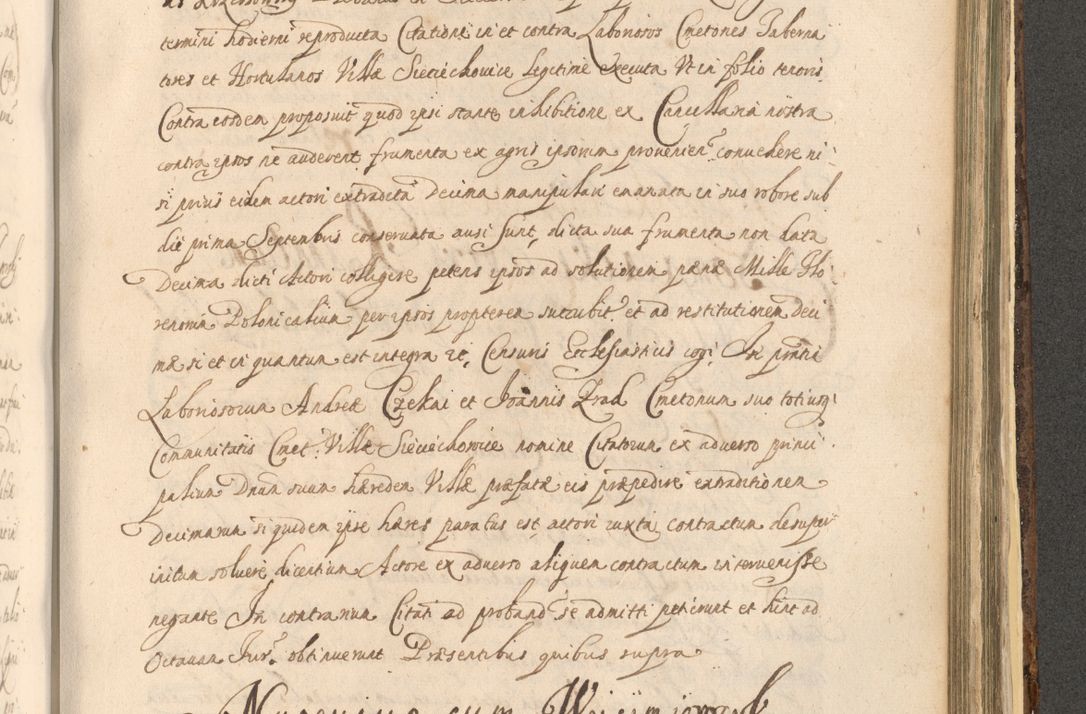 termini hodierni reproducta Citatione in et contra Laboriosos Cmetones Taberna
tores et Hortulanos Villæ Sieciechovice Legitime Executa Ut in folio tenoris
Contra eosdem proposuit quod ipsi stante inhibitione ex Cancellaria nostra
contra ipsos ne auderent frumenta ex agris ipsorum provenien: convehere ni
si prius eidem actori extradita Decima manipulari emanata in suo robore sub
die prima Septembris conservata ausi sunt, dicta sua frumenta non data
Decima dicti Actori colligere petens ipsos ad solutionem pænæ Mille Flo
renorum Polonicalium per ipsos propterea succubit: et ad restitutionem Deci
mæ si et in quantum est integra etc, Censuris Ecclesiasticis cogi In pnti
Laboriosorum Andreæ Czekai et Joannis Zrad Cmetonum suo totiusq
Communitatis Cmet: Villæ Sieciechowice nomine Citatorum ex adverso princi
palium Dnum suum hæredem Villæ præfatæ eis præpedire extraditionem
Decimarum siquidem ipse hæres paratus est actori iuxta contractum desuper
initum solvere, dicentium Actore ex adverso aliquem contractum intervenisse
negante In contrarium Citati ad proband: se admitti petierunt et hinc ad
Octavam Jur: obtinuerunt Præsentibus quibus supra